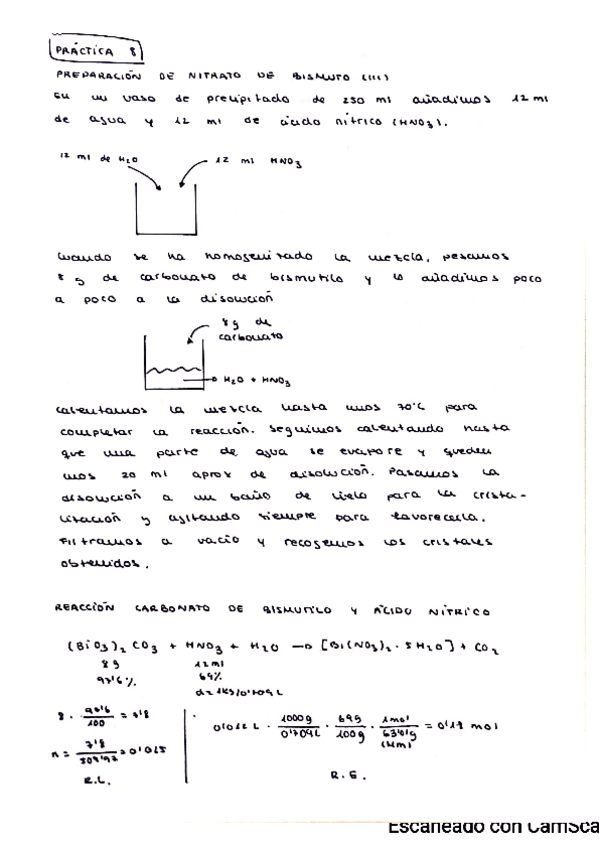 PRÁCTICA 8
PREPARACIÓN DE NITRATO DE BISMUTO (III)
En un vaso de precipitado de 250 ml añadimos 12 ml
de agua y 12 ml de ácido nítrico (HNO3).
12 ml de H2O
12 ml HNO3
Cuando se ha homogenizado la mezcla, pesamos
8 g de carbonato de bismutilo y lo añadimos poco
a poco a la disolución
8g de
carbonato
H2O + HNO3
Calentamos la mezcla hasta unos 70°C para
completar la reacción. Seguimos calentando hasta
que una parte de agua se evapore y queden
unos 20 ml aprox de disolución. Pasamos la
disolución a un baño de hielo para la crista-
lización y agitando siempre para favorecerla.
Filtramos a vacío y recogemos los cristales
obtenidos.
REACCIÓN CARBONATO DE BISMUTILO Y ÁCIDO NÍTRICO
(BiO3)2 CO3 + HNO3 + H2O → [Bi(NO3)2 · 5H2O] + CO2
8g 12ml
97'6% 69%
d = 1kg/0'709L
8 · 97'6/100 = 7'8
n = 7'8/509'97 = 0'015
R.L.
0'012 L · 1000g/0'709L · 69g/100g · 1mol/63'01g (Mm) = 0'18 mol
R.E.
Escaneado con CamSca